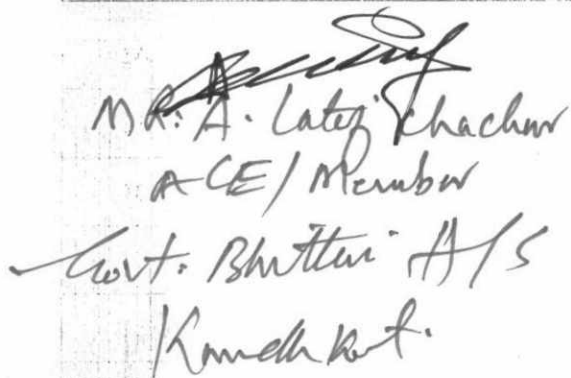 MR. A. Latif Chachar
ACE/Member
Govt. Bhittai H/S
Kandhkot.